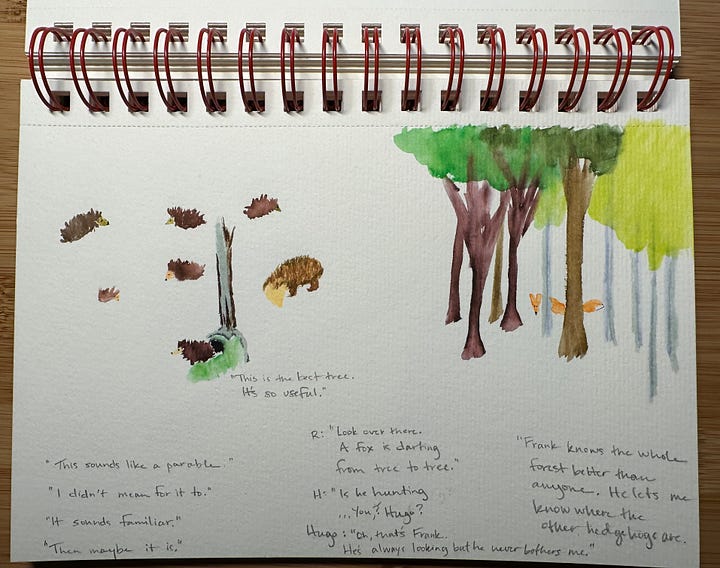 "This is the best tree.
It's so useful."
"This sounds like a parable."
"I didn't mean for it to."
"It sounds familiar."
"Then maybe it is."
R: "Look over there.
A fox is darting
from tree to tree."
H: "Is he hunting
...you, Hugo?
Hugo: "Oh, that's Frank.
He's always looking but he never bothers me."
"Frank knows the whole
forest better than
anyone. He lets me
know where the
other hedgehogs are.